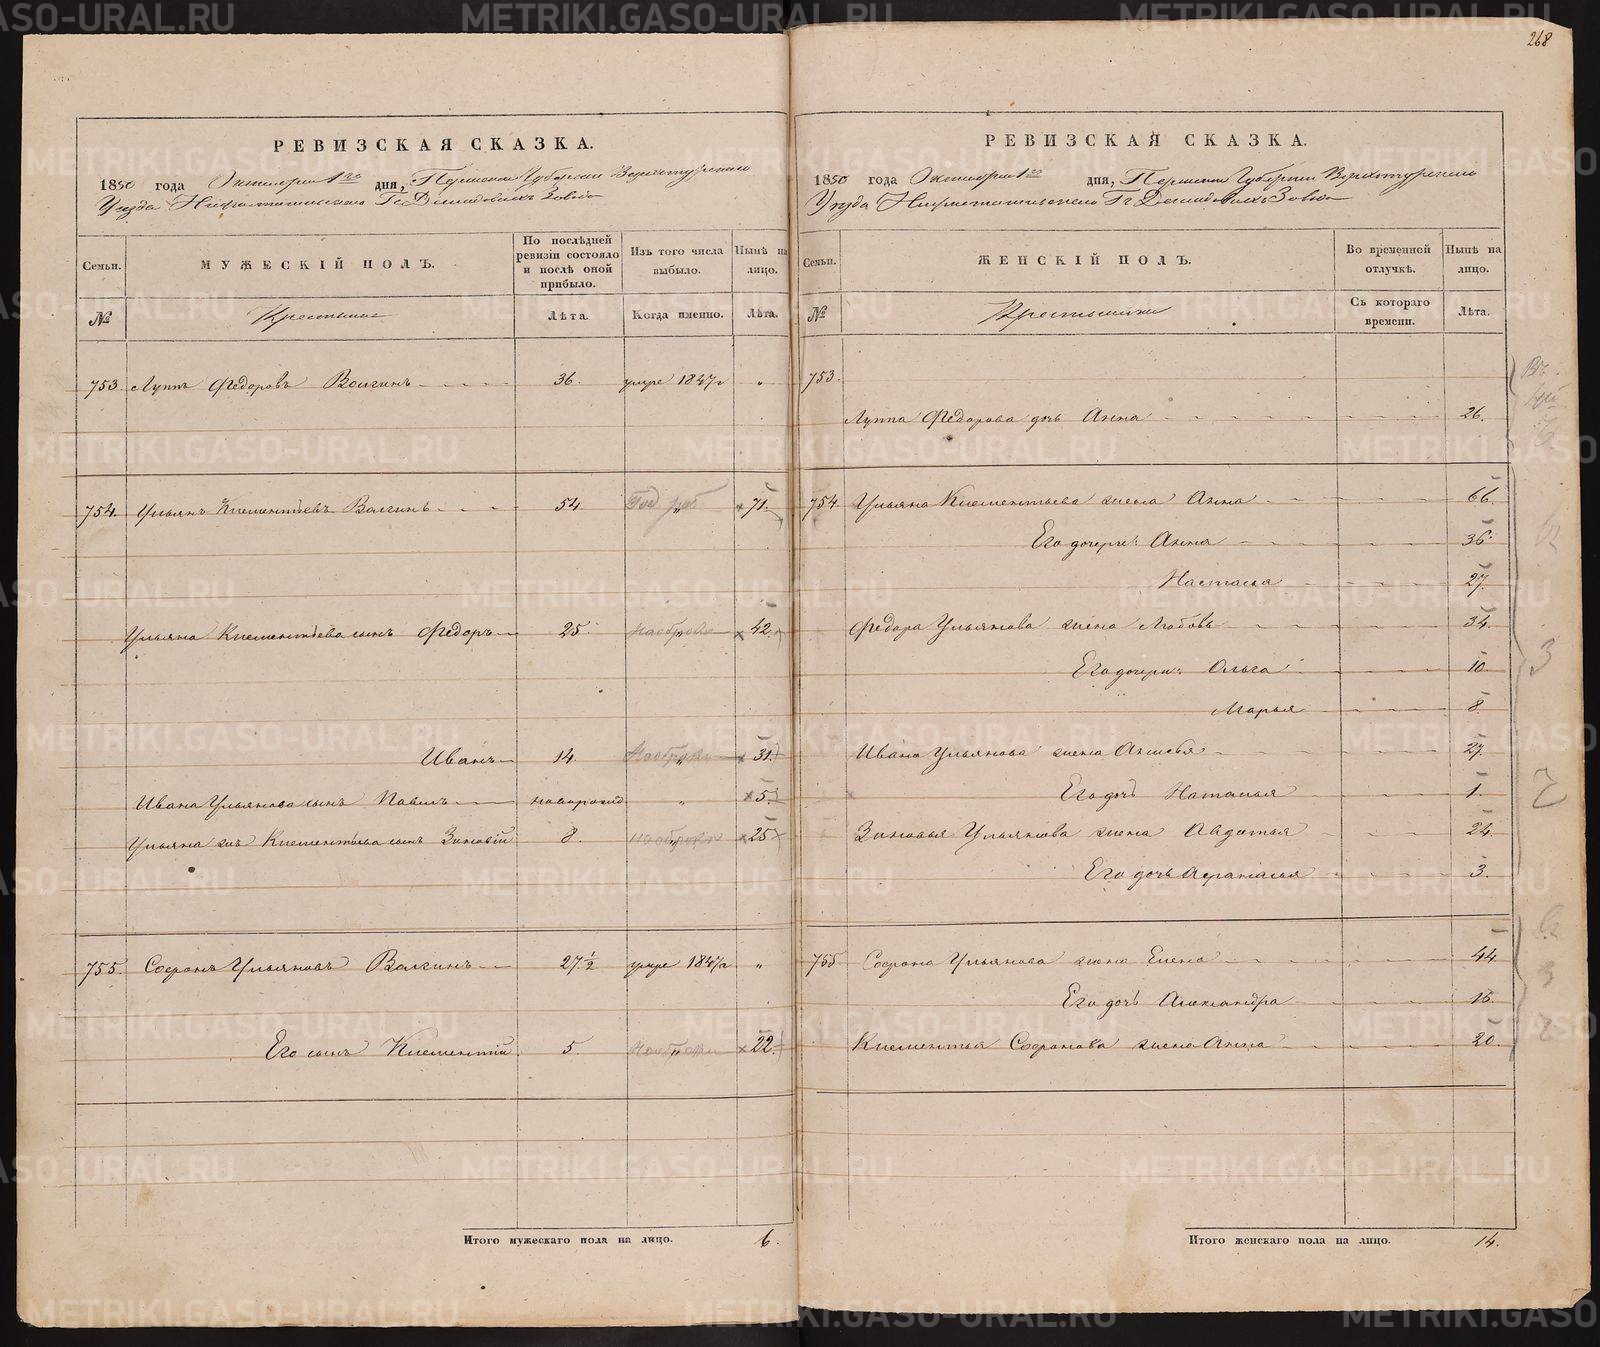 268
РЕВИЗСКАЯ СКАЗКА.
1850 года Октября 1го дня, Пермской Губернии Верхотурскаго
Уезда Нижнетагильскаго Гг. Демидовыхъ Завода
Семьи. МУЖЕСКІЙ ПОЛЪ. По послѣдней ревизіи состояло и послѣ оной прибыло. Изъ того числа выбыло. Нынѣ на лицо.
№ Крестьяне Лѣта. Когда именно. Лѣта.
753. Луппъ Федоровъ Волгинъ 36. умре 1847г "
754. Ульянъ Клементьевъ Волгинъ 54. " 71.
Ульяна Клементьева сынъ Федоръ 25. " 42.
Иванъ 14. " 31.
Ивана Ульянова сынъ Павелъ новорожд " 5.
Ульяна Клементьева сынъ Зиновій 8. " 25
755. Софронъ Ульяновъ Волгинъ 27 1/2 умре 1847г "
Его сынъ Клементій 5 " 22.
Итого мужескаго пола на лицо. 6.
РЕВИЗСКАЯ СКАЗКА.
1850 года Октября 1го дня, Пермской Губерніи Верхотурскаго
Уезда Нижнетагильскаго Гг Демидовыхъ Завода
Семьи. ЖЕНСКІЙ ПОЛЪ. Во временной отлучкѣ. Нынѣ на лицо.
№ Крестьянки Съ котораго времени. Лѣта.
753.
Луппа Федорова дочь Анна 26.
754 Ульяна Клементьева жена Анна 66.
Его дочери: Анна 36.
Настасья 27.
Федора Ульянова жена Любовь 34.
Его дочери: Ольга 10.
Марья 8.
Ивана Ульянова жена 27.
Его дочь Наталья 1.
Зиновья Ульянова жена Авдотья 24
Его дочь Афанасья 3.
755 Софрона Ульянова жена Елена 44
Его дочь Александра 16.
Клементья Софронова жена Анна 20.
Итого женскаго пола на лицо. 14.
METRIKI.GASO-URAL.RU